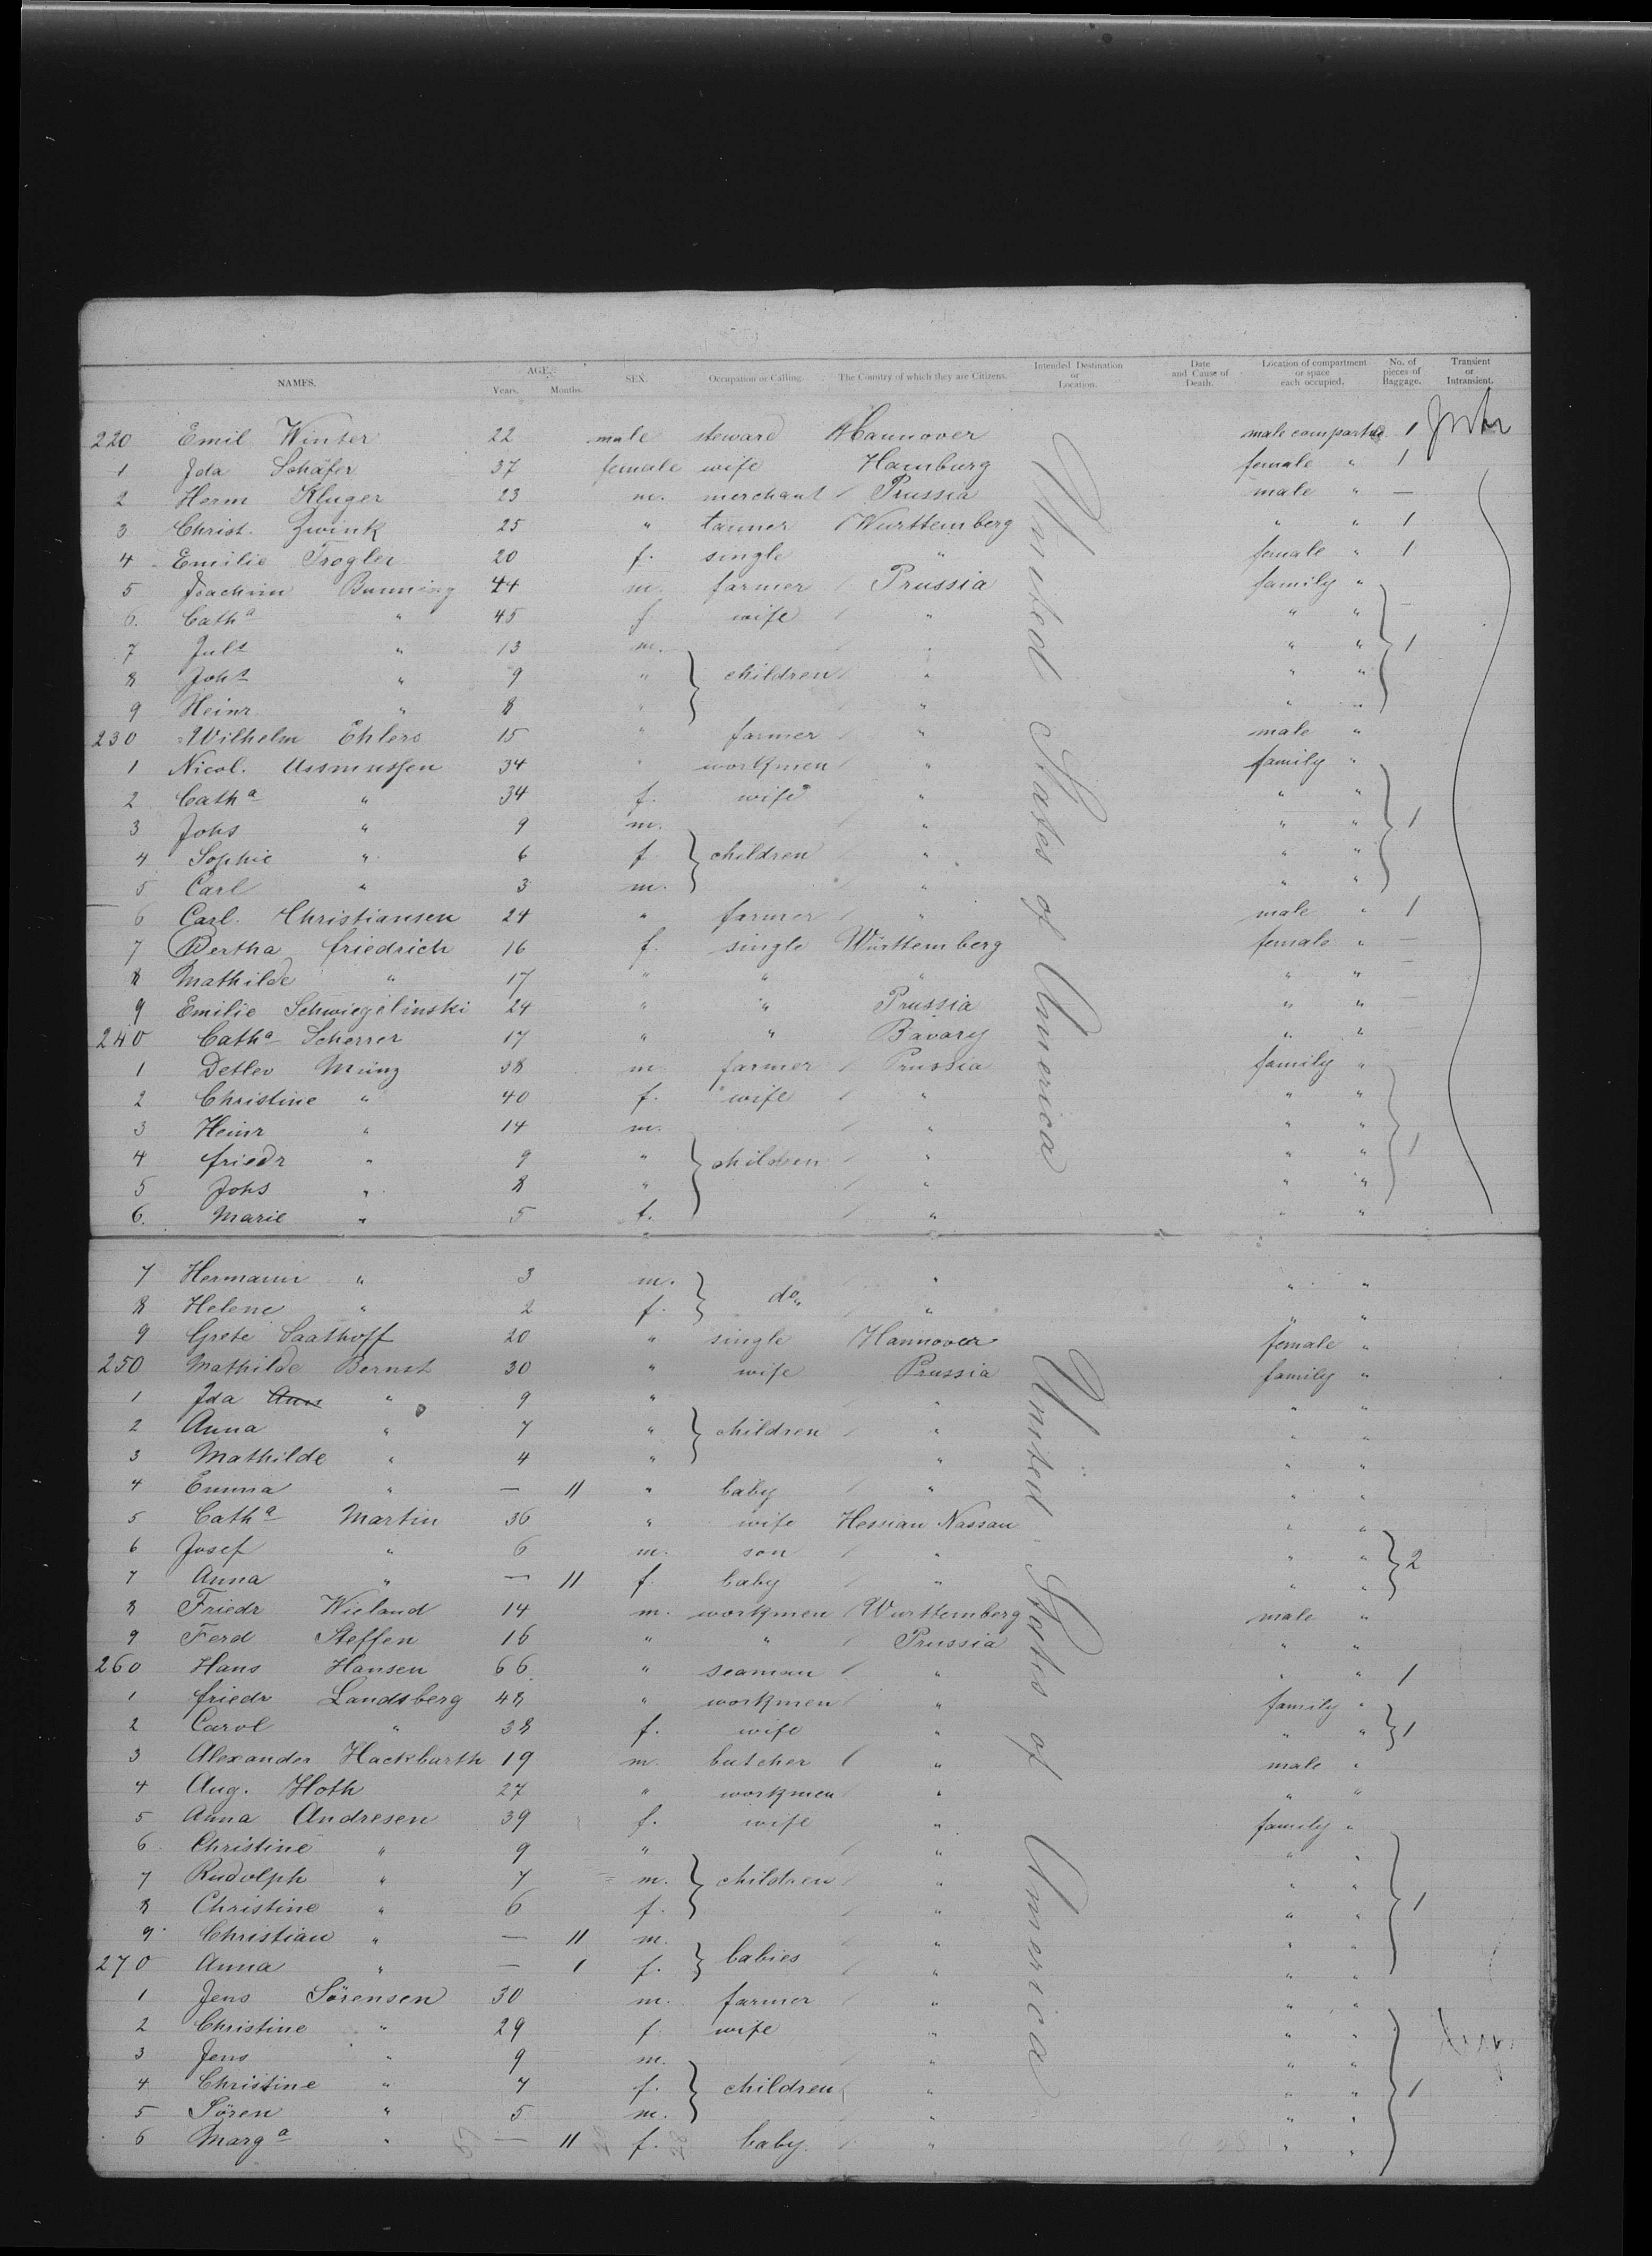 NAMES. AGE. Years. Months. SEX. Occupation or Calling. The Country of which they are Citizens. Intended Destination or Location. Date and Cause of Death. Location of compartment or space each occupied. No. of pieces of Baggage. Transient or Intransient.
220 Emil Winter 22 male steward Hannover male 1
1 Ida Schäfer 37 female wife Hamburg female " 1
2 Herm Kluger 23 m. merchant Prussia male " —
3 Christ. Zwink 25 " tanner Württemberg " " 1
4 Emilie Trogler 20 f. single " female " 1
5 Joachim Bunning 44 m. farmer Prussia family "
6. Catha " 45 f wife " " "
7 Juls " 13 m. " " " 1
8 Johs " 9 " children " " "
9 Heinr " 8 " " " "
230 Wilhelm Ehlers 15 " farmer " male "
1 Nicol. Assmussen 34 " workmen " family "
2 Catha " 34 f. wife " " "
3 Johs " 9 m. " " " 1
4 Sophie " 6 f children " " "
5 Carl " 3 m. " " "
6 Carl. Christiansen 24 " farmer " male " 1
7 Bertha Friedrich 16 f. single Württemberg female " —
8 Mathilde " 17 " " " " " —
9 Emilie Schwiegelinski 24 " " Prussia " " —
240 Catha Scherrer 17 " " Bavary " " —
1 Detlev Münz 38 m farmer Prussia family "
2 Christine " 40 f. wife " " "
3 Heinr " 14 m. " " "
4 Friedr " 9 " children " " " 1
5 Johs " 8 " " " "
6. Marie " 5 f. " " "
United States of America
7 Hermann " 3 m. " " "
8 Helene " 2 f. do " " "
9 Grete Saathoff 20 " single Hannover female "
250 Mathilde Bernst 30 " wife Prussia family "
1 Ida " 9 " " " "
2 Anna " 7 " children " " "
3 Mathilde " 4 " " " "
4 Emma " — 11 " baby " " "
5 Catha Martin 36 " wife Hessian Nassau " "
6 Josef " 6 m. son " " " 2
7 Anna " — 11 f. baby " " "
8 Friedr Wieland 14 m. workmen Württemberg male "
9 Ferd Steffen 16 " " Prussia " "
260 Hans Hansen 66 " seaman " " " 1
1 Friedr Landsberg 48 " workmen " family "
2 Carol " 38 f. wife " " " 1
3 Alexander Hackbarth 19 m. butcher " male "
4 Aug. Hoth 27 " workmen " " "
5 Anna Andresen 39 f. wife " family "
6. Christine " 9 " " " "
7 Rudolph " 7 m. children " " "
8 Christine " 6 f. " " " 1
9. Christian " — 11 m. " " "
270 Anna " — 1 f. babies " " "
1 Jens Sörensen 30 m. farmer " " "
2 Christine " 29 f wife " " "
3 Jens " 9 m. " " "
4 Christine " 7 f. children " " " 1
5 Sören " 5 m. " " "
6 Marga " — 11 f. baby. " " "
United States of America